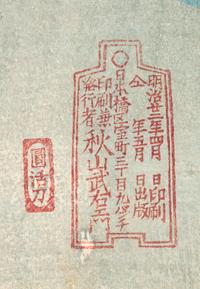 明治廿二年四月 日印刷
仝 年五月 日出版
日本橋区室町三丁目九番地
印刷兼
発行者
秋山武右エ門
圓活刀